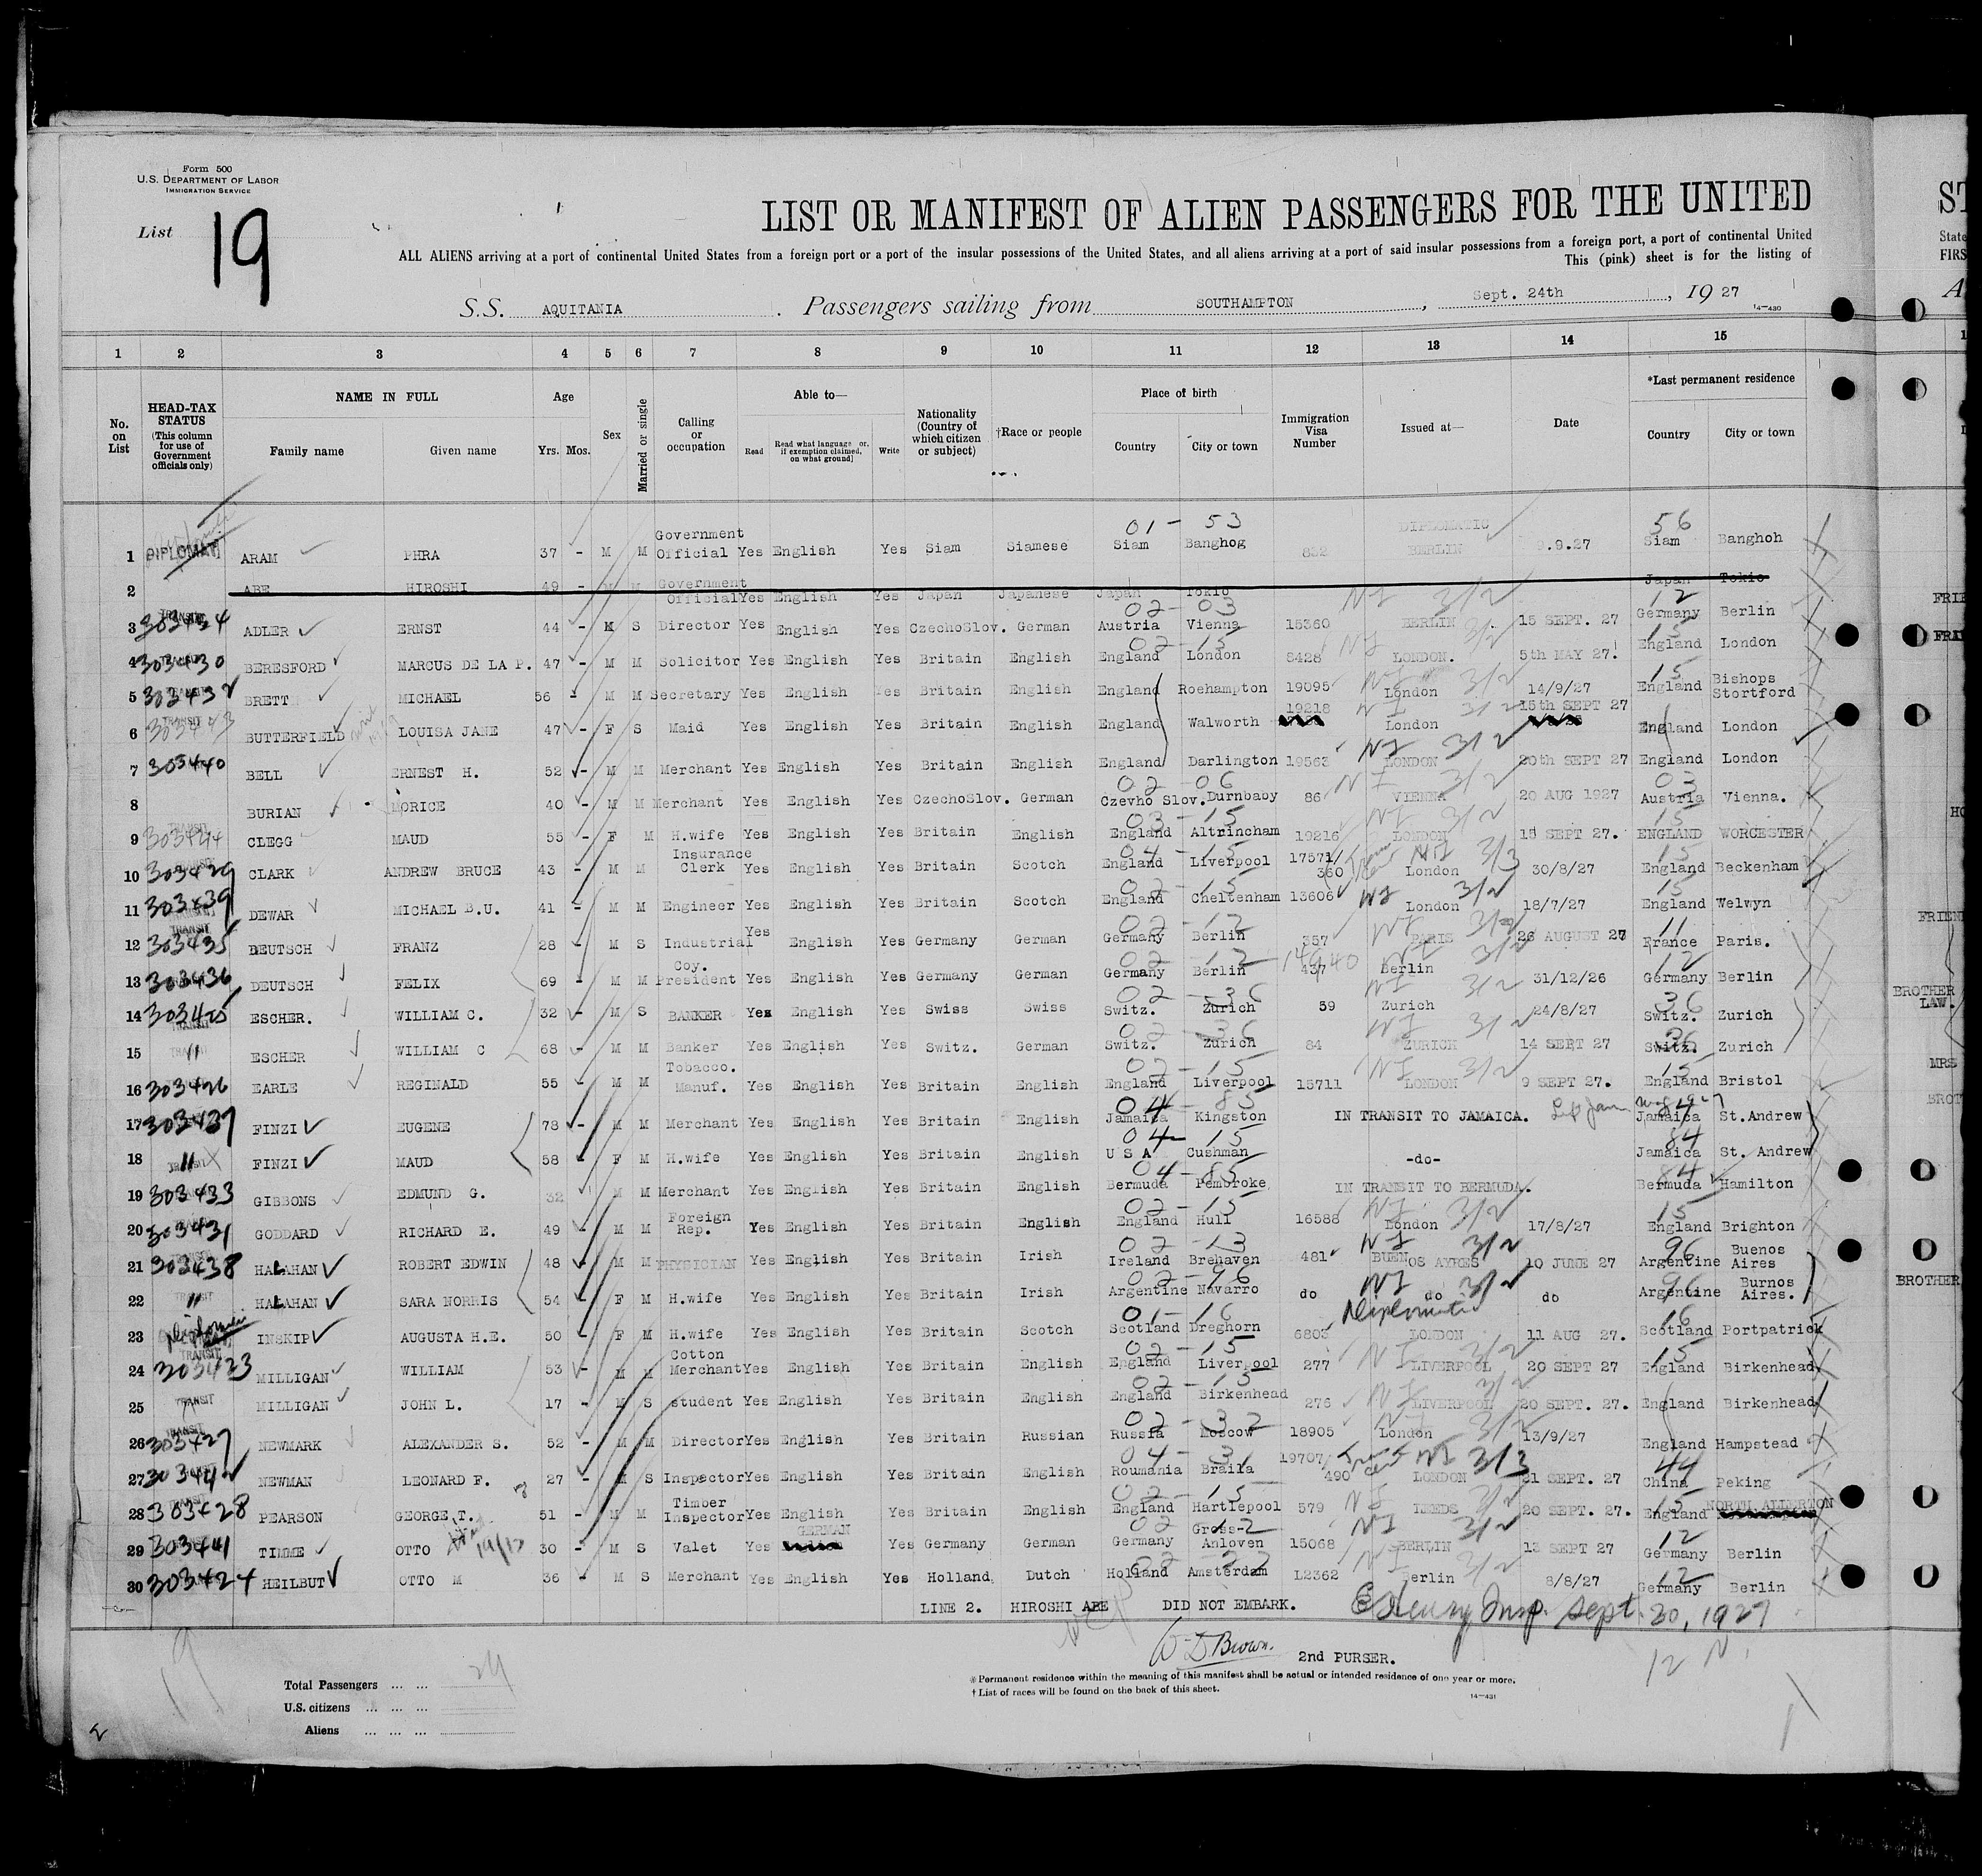 Form 500
U.S. DEPARTMENT OF LABOR
IMMIGRATION SERVICE
List 19
LIST OR MANIFEST OF ALIEN PASSENGERS FOR THE UNITED
ALL ALIENS arriving at a port of continental United States from a foreign port or a port of the insular possessions of the United States, and all aliens arriving at a port of said insular possessions from a foreign port, a port of continental United
This (pink) sheet is for the listing of
S.S. AQUITANIA. Passengers sailing from SOUTHAMPTON, Sept. 24th, 19 27
14—430
1 2 3 4 5 6 7 8 9 10 11 12 13 14 15
No. on List
HEAD-TAX STATUS (This column for use of Government officials only)
NAME IN FULL
Family name Given name
Age
Yrs. Mos.
Sex
Married or single
Calling or occupation
Able to—
Read Read what language or, if exemption claimed, on what ground] Write
Nationality (Country of which citizen or subject)
†Race or people
Place of birth
Country City or town
Immigration Visa Number
Issued at—
Date
*Last permanent residence
Country City or town
01 - 53 DIPLOMATIC 56
1 DIPLOMAT ARAM PHRA 37 - M M Government Official Yes English Yes Siam Siamese Siam Banghog 832 BERLIN 9.9.27 Siam Banghoh
2 ABE HIROSHI 49 - M M Government Official Yes English Yes Japan Japanese Japan Tokio Japan Tokio
02 - 03 NI 3/2 12
3 303434 ADLER ERNST 44 - M S Director Yes English Yes CzechoSlov. German Austria Vienna 15360 BERLIN 15 SEPT. 27 Germany Berlin
02 - 15 NI 3/2 15
4 303430 BERESFORD MARCUS DE LA P. 47 - M M Solicitor Yes English Yes Britain English England London 8428 LONDON. 5th MAY 27. England London
NI 3/2 15
5 303432 BRETT MICHAEL 56 - M M Secretary Yes English Yes Britain English England Roehampton 19095 London 14/9/27 England Bishops Stortford
6 TRANSIT BUTTERFIELD LOUISA JANE 47 - F S Maid Yes English Yes Britain English England Walworth 19218 London 15th SEPT 27 England London
NI 3/2
7 303440 BELL ERNEST H. 52 - M M Merchant Yes English Yes Britain English England Darlington 19563 LONDON 20th SEPT 27 England London
02 - 06 NI 3/2 03
8 BURIAN MORICE 40 - M M Merchant Yes English Yes CzechoSlov. German Czevho Slov. Durnbaby 86 VIENNA 20 AUG 1927 Austria Vienna.
03 - 15 NI 3/2 15
9 303444 CLEGG MAUD 55 - F M H.wife Yes English Yes Britain English England Altrincham 19216 LONDON 15 SEPT 27. ENGLAND WORCESTER
04 - 15 NI 3/3 15
10 303429 CLARK ANDREW BRUCE 43 - M M Insurance Clerk Yes English Yes Britain Scotch England Liverpool 17571/360 London 30/8/27 England Beckenham
02 - 15 NI 3/2 15
11 303439 DEWAR MICHAEL B.U. 41 - M M Engineer Yes English Yes Britain Scotch England Cheltenham 13606 London 18/7/27 England Welwyn
02 - 12 NI 3/2 11
12 303435 DEUTSCH FRANZ 28 - M S Industrial Yes English Yes Germany German Germany Berlin 357 PARIS 26 AUGUST 27 France Paris.
02 - 12 NI 3/2 12
13 303436 DEUTSCH FELIX 69 - M M Coy. President Yes English Yes Germany German Germany Berlin 437 Berlin 31/12/26 Germany Berlin
02 - 36 NI 3/2 36
14 303425 ESCHER. WILLIAM C. 32 - M S BANKER Yes English Yes Swiss Swiss Switz. Zurich 59 Zurich 24/8/27 Switz. Zurich
02 - 36 NI 3/2 36
15 " ESCHER WILLIAM C 68 - M M Banker Yes English Yes Switz. German Switz. Zurich 84 ZURICH 14 SEPT 27 Switz. Zurich
02 - 15 NI 3/2 15
16 303426 EARLE REGINALD 55 - M M Tobacco. Manuf. Yes English Yes Britain English England Liverpool 15711 LONDON 9 SEPT 27. England Bristol
04 - 85 84
17 303437 FINZI EUGENE 78 - M M Merchant Yes English Yes Britain English Jamaica Kingston IN TRANSIT TO JAMAICA. Jamaica St.Andrew
04 - 15 84
18 " FINZI MAUD 58 - F M H.wife Yes English Yes Britain English U S A Cushman -do- Jamaica St. Andrew
04 - 85 84
19 303433 GIBBONS EDMUND G. 32 M M Merchant Yes English Yes Britain English Bermuda Pembroke IN TRANSIT TO BERMUDA. Bermuda Hamilton
02 - 15 NI 3/2 15
20 303431 GODDARD RICHARD E. 49 - M M Foreign Rep. Yes English Yes Britain English England Hull 16588 London 17/8/27 England Brighton
02 - 13 NI 3/2 96
21 303438 HALAHAN ROBERT EDWIN 48 - M M PHYSICIAN Yes English Yes Britain Irish Ireland Brehaven 481 BUENOS AYRES 10 JUNE 27 Argentine Buenos Aires
02 - 96 NI 3/2 96
22 " HALAHAN SARA NORRIS 54 - F M H.wife Yes English Yes Britain Irish Argentine Navarro do do do Argentine Burnos Aires.
01 - 16 Diplomatic 16
23 Diplomat INSKIP AUGUSTA H.E. 50 - F M H.wife Yes English Yes Britain Scotch Scotland Dreghorn 6803 LONDON 11 AUG 27. Scotland Portpatrick
02 - 15 NI 3/2 15
24 303423 MILLIGAN WILLIAM 53 - M M Cotton Merchant Yes English Yes Britain English England Liverpool 277 LIVERPOOL 20 SEPT 27 England Birkenhead
02 - 15 NI 3/2
25 TRANSIT MILLIGAN JOHN L. 17 - M S student Yes English Yes Britain English England Birkenhead 276 LIVERPOOL 20 SEPT. 27. England Birkenhead
02 - 32 NI 3/2
26 303427 NEWMARK ALEXANDER S. 52 - M M Director Yes English Yes Britain Russian Russia Moscow 18905 London 13/9/27 England Hampstead
04 - 31 NI 3/3 44
27 303442 NEWMAN LEONARD F. 27 - M S Inspector Yes English Yes Britain English Roumania Braila 19707/490 LONDON 21 SEPT. 27 China Peking
02 - 15 NI 3/2 15
28 303428 PEARSON GEORGE T. 51 - M M Timber Inspector Yes English Yes Britain English England Hartlepool 579 LEEDS 20 SEPT. 27. England NORTH ALLERTON
02 - 12 NI 3/2 12
29 303441 TIMME OTTO 30 - M S Valet Yes GERMAN Yes Germany German Germany Gross-Anloven 15068 BERLIN 13 SEPT 27 Germany Berlin
02 - 22 NI 3/2 12
30 303424 HEILBUT OTTO M 36 - M S Merchant Yes English Yes Holland Dutch Holland Amsterdam L2362 Berlin 8/8/27 Germany Berlin
LINE 2. HIROSHI ABE DID NOT EMBARK.
Insp. Sept. 30, 1927
W D Brown. 2nd PURSER.
Total Passengers ... ... 29
U.S. citizens ... ... ...
Aliens ... ... ...
*Permanent residence within the meaning of this manifest shall be actual or intended residence of one year or more.
†List of races will be found on the back of this sheet.
14—431